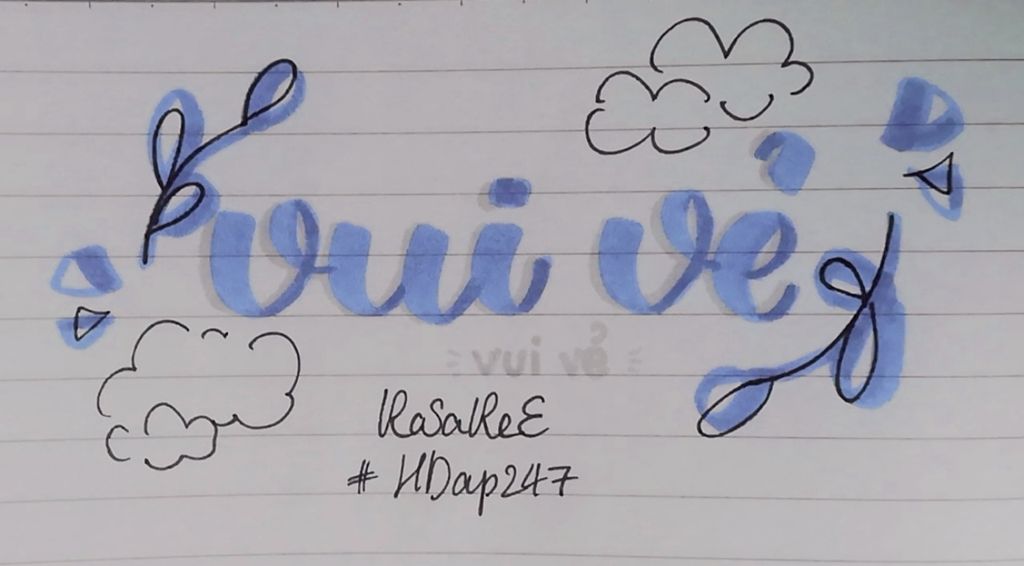 vui vẻ
vui vẻ
RoSaReE
# HDap247